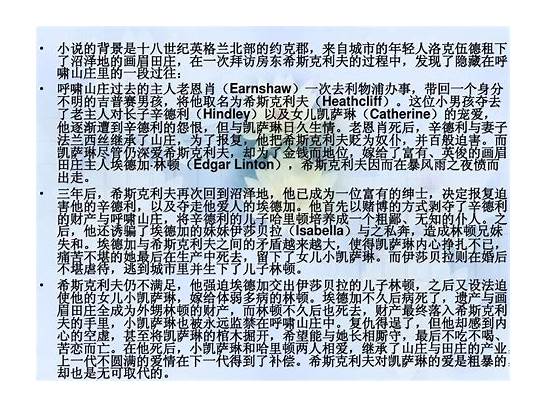 • 小说的背景是十八世纪英格兰北部的约克郡，来自城市的年轻人洛克伍德租下
了沼泽地的画眉田庄，在一次拜访房东希斯克利夫的过程中，发现了隐藏在呼
啸山庄里的一段过往：
• 呼啸山庄过去的主人老恩肖（Earnshaw）一次去利物浦办事，带回一个身分
不明的吉普赛男孩，将他取名为希斯克利夫（Heathcliff）。这位小男孩夺去
了老主人对长子辛德利（Hindley）以及女儿凯萨琳（Catherine）的宠爱，
他逐渐遭到辛德利的怨恨，但与凯萨琳日久生情。老恩肖死后，辛德利与妻子
法兰西丝继承了山庄，为了报复，他把希斯克利夫贬为奴仆，并百般迫害。而
凯萨琳尽管仍深爱希斯克利夫，却为了金钱而地位，嫁给了富有、英俊的画眉
田庄主人埃德加·林顿（Edgar Linton），希斯克利夫因而在暴风雨之夜愤而
出走。
• 三年后，希斯克利夫再次回到沼泽地，他已成为一位富有的绅士，决定报复迫
害他的辛德利，以及夺走他爱人的埃德加。他首先以赌博的方式剥夺了辛德利
的财产与呼啸山庄，将辛德利的儿子哈里顿培养成一个粗鄙、无知的仆人。之
后，他还诱骗了埃德加的妹妹伊莎贝拉（Isabella）与之私奔，造成林顿兄妹
失和。埃德加与希斯克利夫之间的矛盾越来越大，使得凯萨琳内心挣扎不已，
痛苦不堪的她最后在生产中死去，留下了女儿小凯萨琳。而伊莎贝拉则在婚后
不堪虐待，逃到城市里并生下了儿子林顿。
• 希斯克利夫仍不满足，他强迫埃德加交出伊莎贝拉的儿子林顿，之后又设法迫
使他的女儿小凯萨琳，嫁给体弱多病的林顿。埃德加不久后病死了，遗产与画
眉田庄全成为外甥林顿的财产，而林顿不久后也死去，财产最终落入希斯克利
夫的手里，小凯萨琳也被永远监禁在呼啸山庄中。复仇得逞了，但他却感到内
心的空虚，甚至将凯萨琳的棺木掘开，希望能与她长相厮守，最后不吃不喝、
苦恋而亡。在他死后，小凯萨琳和哈里顿两人相爱，继承了山庄与田庄的产业，
上一代不圆满的爱情在下一代得到了补偿。希斯克利夫对凯萨琳的爱是粗暴的
却也是无可取代的。